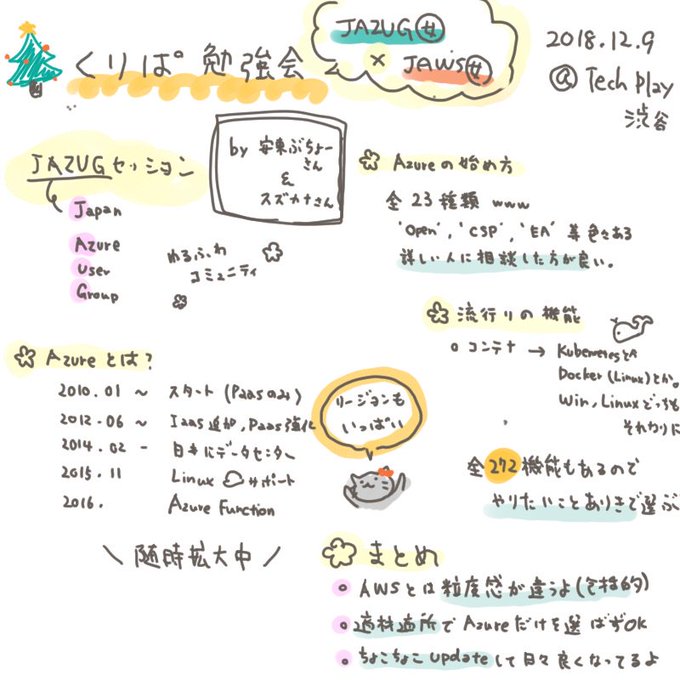 くりぱ 勉強会
JAZUG女
× JAWS女
2018.12.9
@ Tech Play
渋谷
JAZUGセッション
Japan
Azure
User
Group
ゆるふわ
コミュニティ
by 安東ぶちょー
さん
&
スズカナさん
Azureの始め方
全 23種類 www
'Open', 'CSP', 'EA' 等色々ある
詳しい人に相談した方が良い。
流行りの機能
コンテナ → Kubernetesとか
Docker (Linux)とか。
Win, Linuxどっちも
それなりに
全272機能もあるので
やりたいことありきで選ぶ
Azureとは?
2010.01 〜 スタート (PaaSのみ)
2012.06 〜 IaaS追加, PaaS強化
2014.02 - 日本にデータセンター
2015.11 Linux サポート
2016. Azure Function
\ 随時拡大中 /
リージョンも
いっぱい
まとめ
AWSとは粒度感が違うよ(包括的)
適材適所でAzureだけを選ばずOK
ちょこちょこupdateして日々良くなってるよ